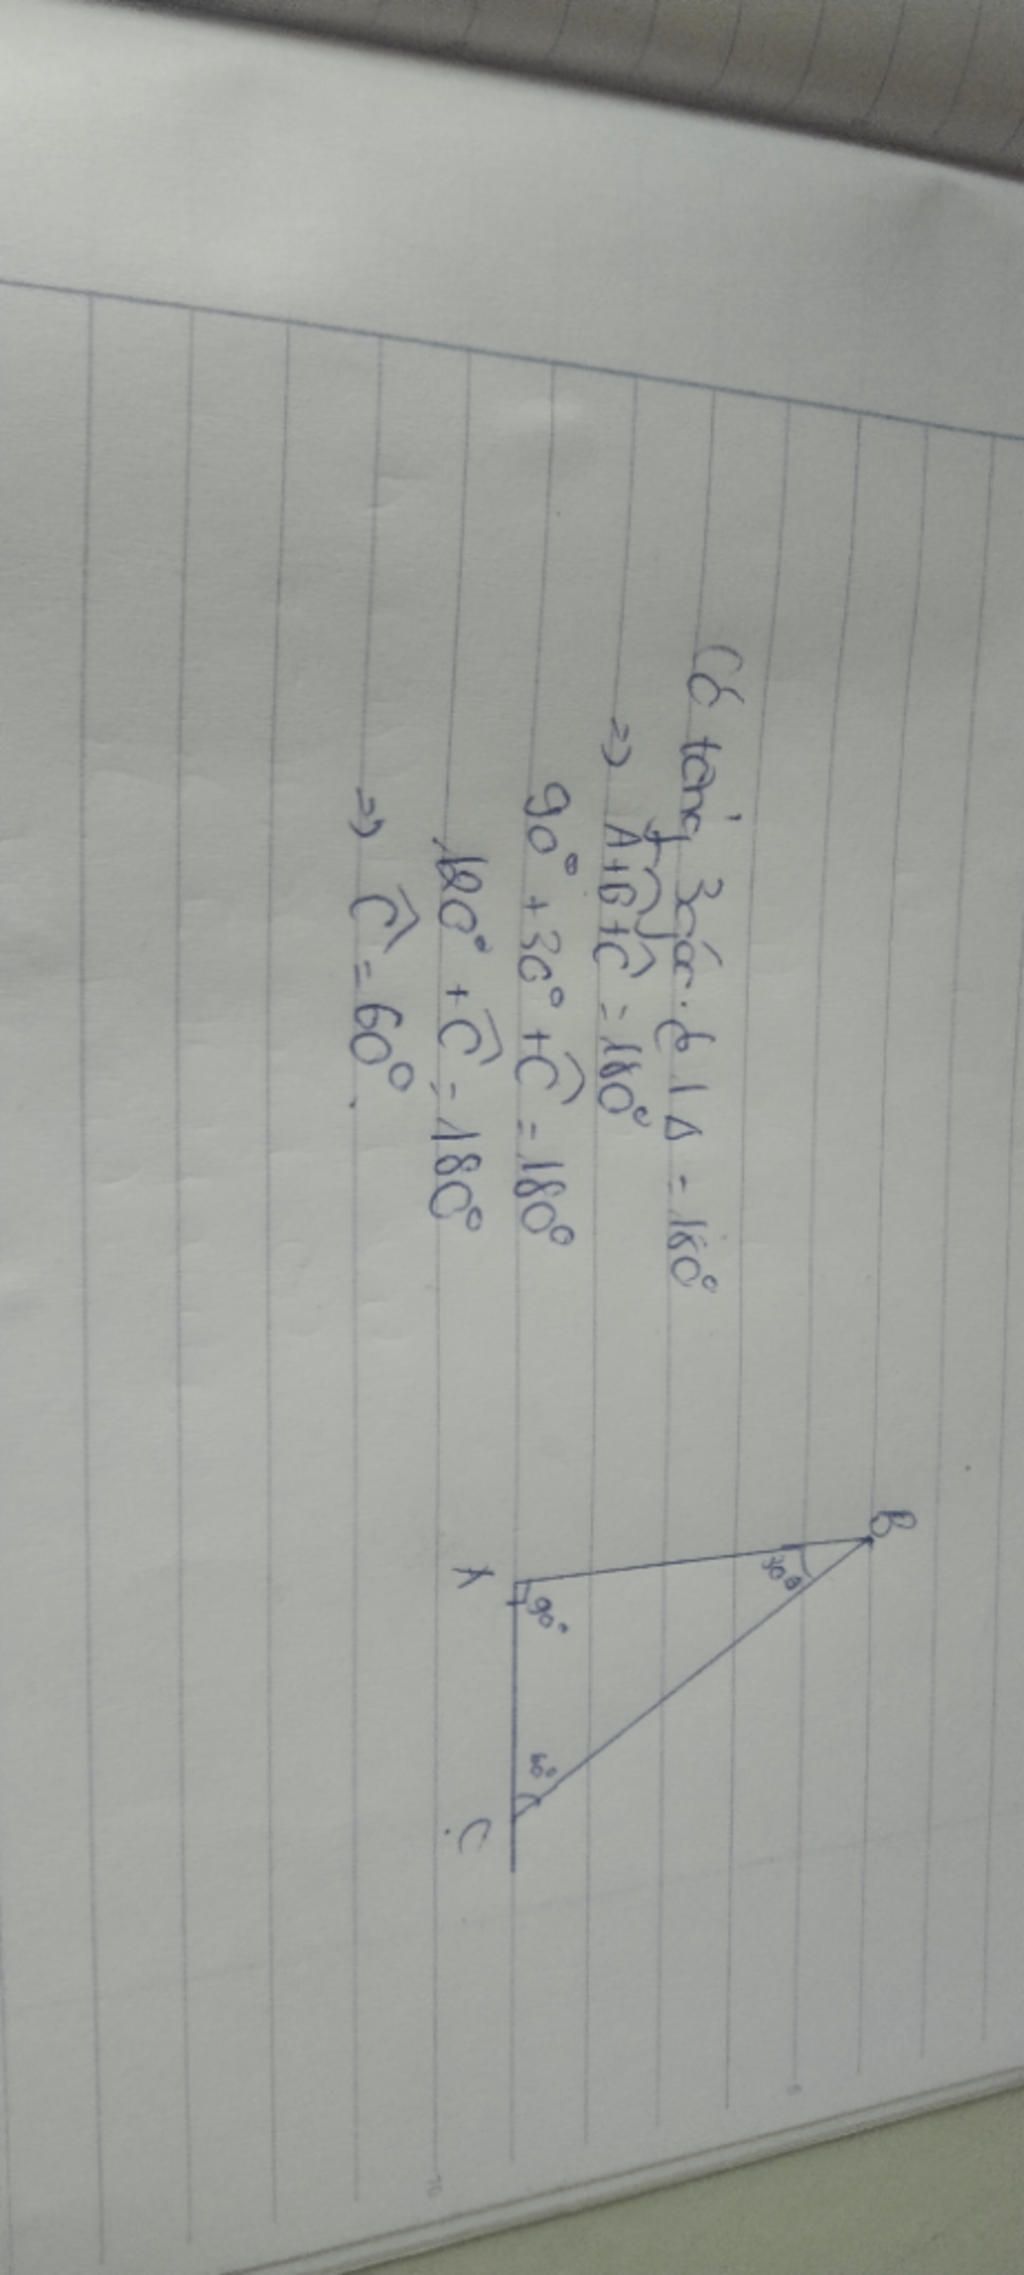 Có tổng 3 góc ở 1 Δ = 180°
=> Â + B̂ + Ĉ = 180°
90° + 30° + Ĉ = 180°
120° + Ĉ = 180°
=> Ĉ = 60°.
B
30°
A
90°
60°
C